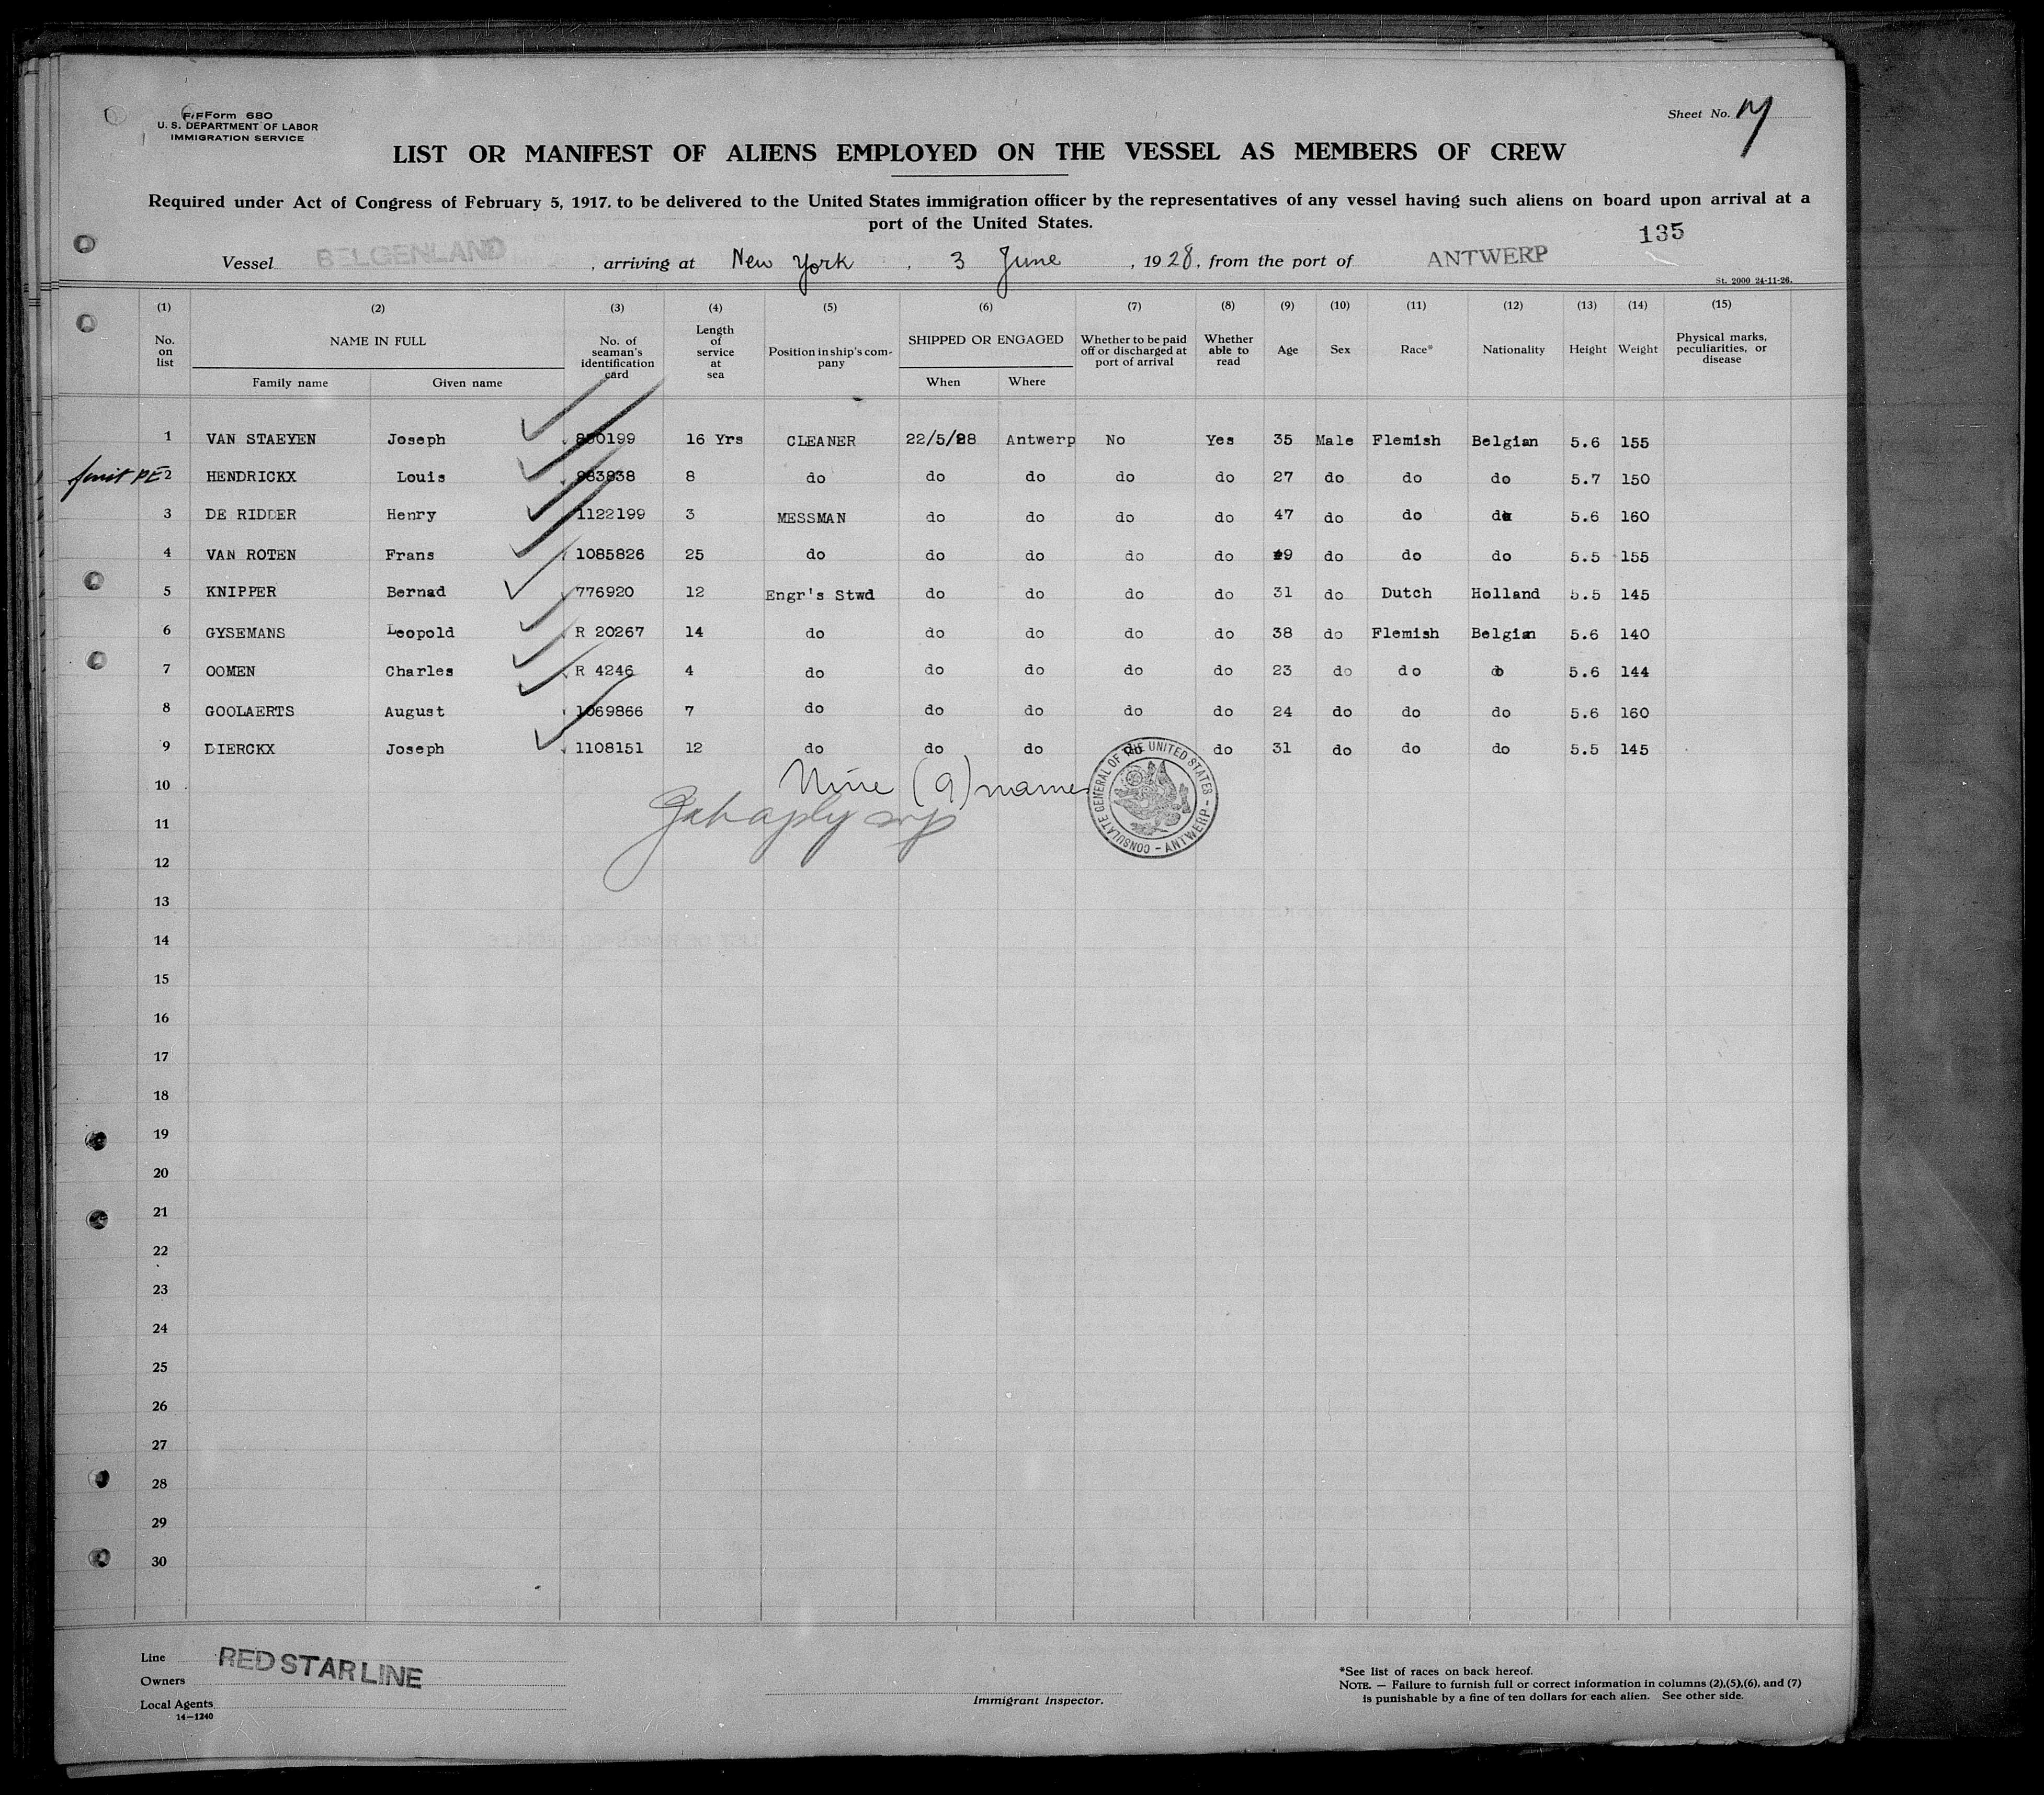 Form 680
U. S. DEPARTMENT OF LABOR
IMMIGRATION SERVICE
Sheet No.
LIST OR MANIFEST OF ALIENS EMPLOYED ON THE VESSEL AS MEMBERS OF CREW
Required under Act of Congress of February 5, 1917. to be delivered to the United States immigration officer by the representatives of any vessel having such aliens on board upon arrival at a
port of the United States.
135
Vessel BELGENLAND, arriving at New York, 3 June, 1928, from the port of ANTWERP
St. 2000 24-11-26.
(1) (2) (3) (4) (5) (6) (7) (8) (9) (10) (11) (12) (13) (14) (15)
No. on list NAME IN FULL No. of seaman's identification card Length of service at sea Position in ship's company SHIPPED OR ENGAGED Whether to be paid off or discharged at port of arrival Whether able to read Age Sex Race* Nationality Height Weight Physical marks, peculiarities, or disease
Family name Given name When Where
1 VAN STAEYEN Joseph 850199 16 Yrs CLEANER 22/5/28 Antwerp No Yes 35 Male Flemish Belgian 5.6 155
2 HENDRICKX Louis 983838 8 do do do do do 27 do do do 5.7 150
3 DE RIDDER Henry 1122199 3 MESSMAN do do do do 47 do do do 5.6 160
4 VAN ROTEN Frans 1085826 25 do do do do do do do do 5.5 155
5 KNIPPER Bernad 776920 12 Engr's Stwd do do do do 31 do Dutch Holland 5.5 145
6 GYSEMANS Leopold R 20267 14 do do do do do 38 do Flemish Belgian 5.6 140
7 OOMEN Charles R 4246 4 do do do do do 23 do do do 5.6 144
8 GOOLAERTS August 1069866 7 do do do do do 24 do do do 5.6 160
9 DIERCKX Joseph 1108151 12 do do do do do 31 do do do 5.5 145
10 Nine (9) names
CONSULATE GENERAL OF THE UNITED STATES - ANTWERP -
11
12
13
14
15
16
17
18
19
20
21
22
23
24
25
26
27
28
29
30
Line RED STAR LINE
Owners
Local Agents
14-1240
Immigrant Inspector.
*See list of races on back hereof.
NOTE. — Failure to furnish full or correct information in columns (2),(5),(6), and (7)
is punishable by a fine of ten dollars for each alien. See other side.